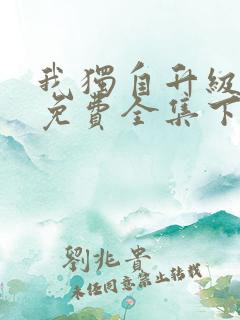 我獨自升級
免費全集下
劉兆貴
未經同意禁止轉載